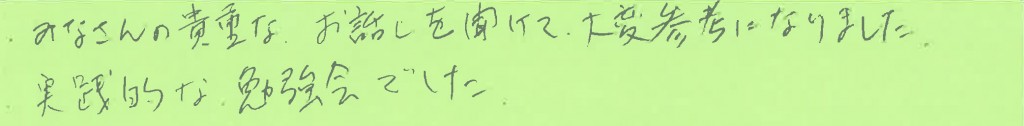 ・みなさんの貴重な、お話しを聞けて、大変参考になりました。
実践的な、勉強会でした。